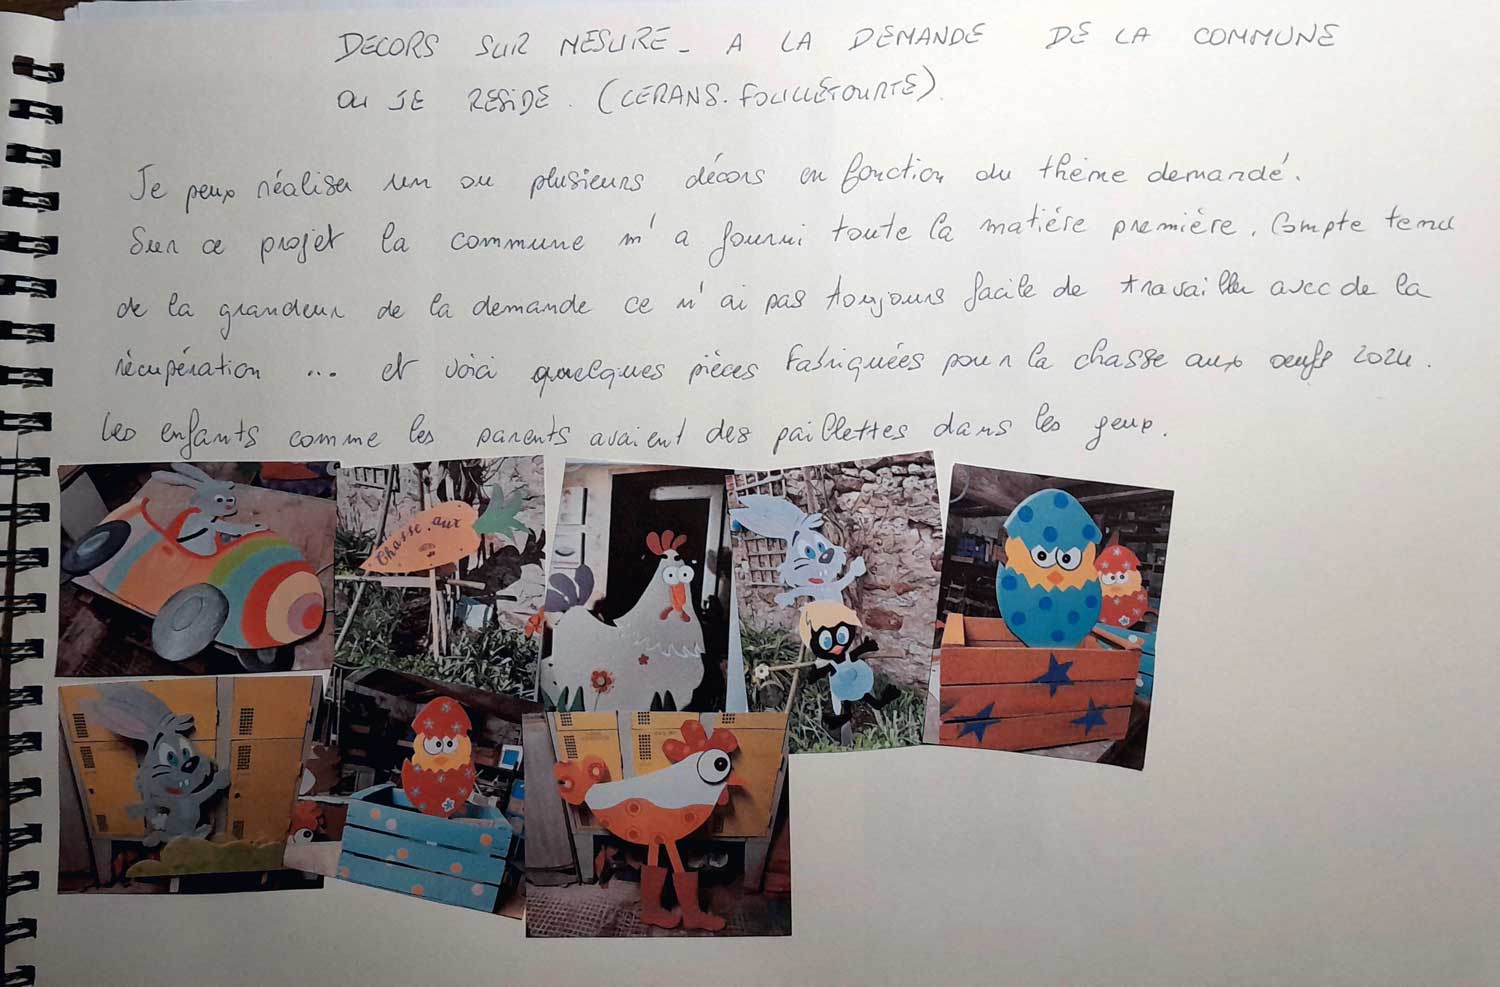 DECORS SUR MESURE - A LA DEMANDE DE LA COMMUNE
OU JE RESIDE. (CERANS-FOULLETOURTE).
Je peux réaliser un ou plusieurs décors en fonction du thème demandé.
Sur ce projet la commune m'a fourni toute la matière première. Compte tenu
de la grandeur de la demande ce n'ai pas toujours facile de travailler avec de la
récupération ... et voici quelques pièces fabriquées pour la chasse aux oeufs 2024.
Les enfants comme les parents avaient des paillettes dans les yeux.
Chasse aux